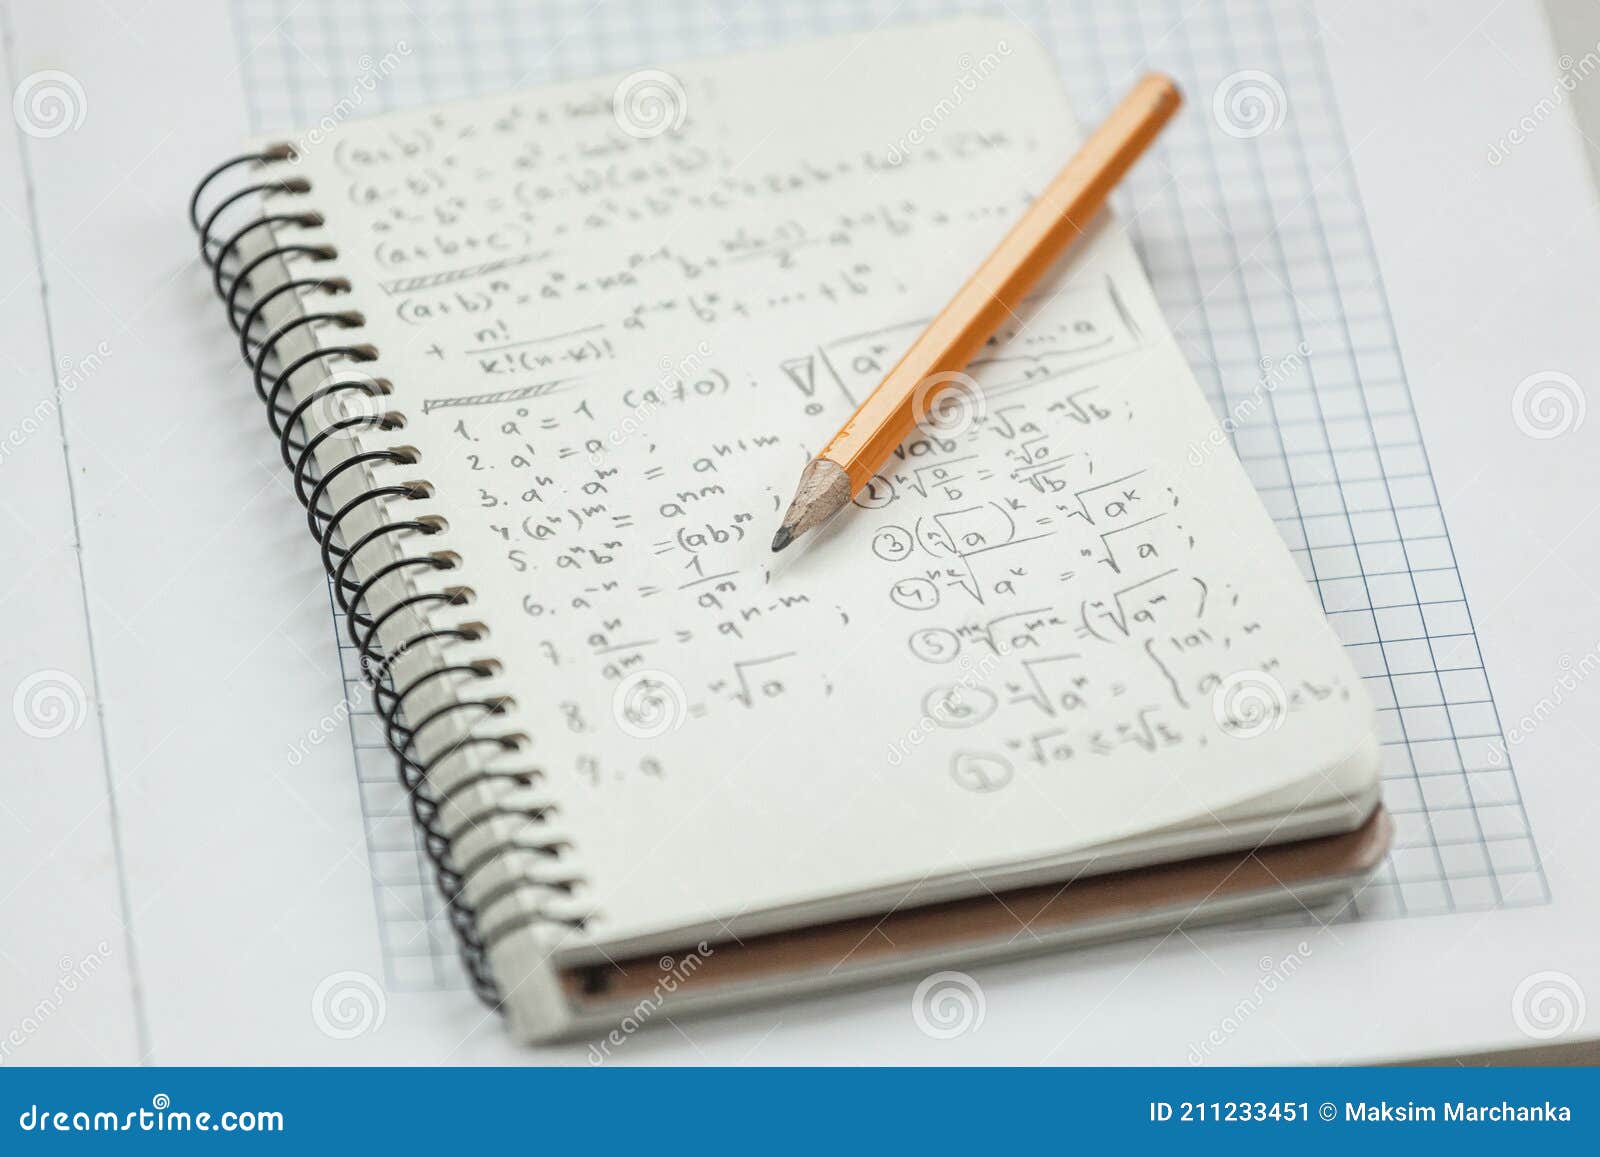 (a+b)² = a² + 2ab
(a-b)² = a² - 2ab
a² - b² = (a-b)(a+b);
(a+b+c)² = a² + b² + c² + 2ab + 2ac + 2bc;
(a+b)ⁿ = aⁿ + naⁿ⁻¹b + n(n-1)/2 aⁿ⁻²b² + ...
+ n!/k!(n-k)! aⁿ⁻ᵏ bᵏ + ... + bⁿ;
1. a⁰ = 1 (a≠0);
2. a¹ = a;
3. aⁿ · aᵐ = aⁿ⁺ᵐ;
4. (aⁿ)ᵐ = aⁿᵐ;
5. aⁿbⁿ = (ab)ⁿ
6. a⁻ⁿ = 1/aⁿ;
7. aⁿ/aᵐ = aⁿ⁻ᵐ;
8. = ⁿ√a;
9. a
aⁿ ... · a
n
√ab = ⁿ√a · ⁿ√b;
② ⁿ√(a/b) = ⁿ√a/ⁿ√b;
③ (ⁿ√a)ᵏ = ⁿ√aᵏ;
④ ⁿᵏ√aᵏ = ⁿ√a;
⑤ ⁿᵏ√aᵐᵏ = (ⁿ√aᵐ);
⑥ ⁿ√aⁿ = { |a|, n
a, n
⑦ ⁿ√a ≤ ⁿ√b, ≤ b;
dreamstime.com
ID 211233451 © Maksim Marchanka